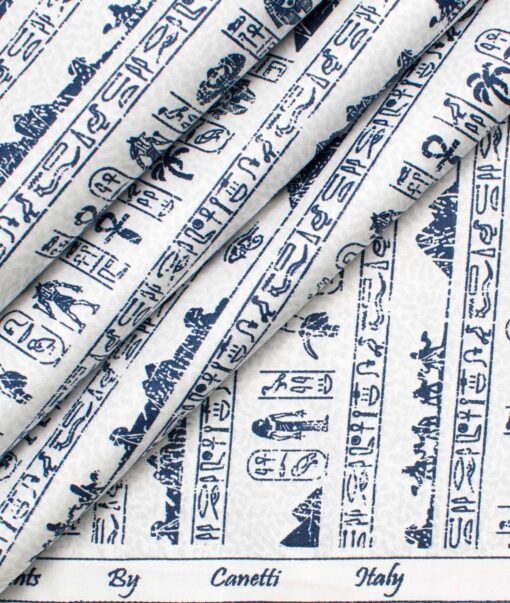 By Canetti Italy